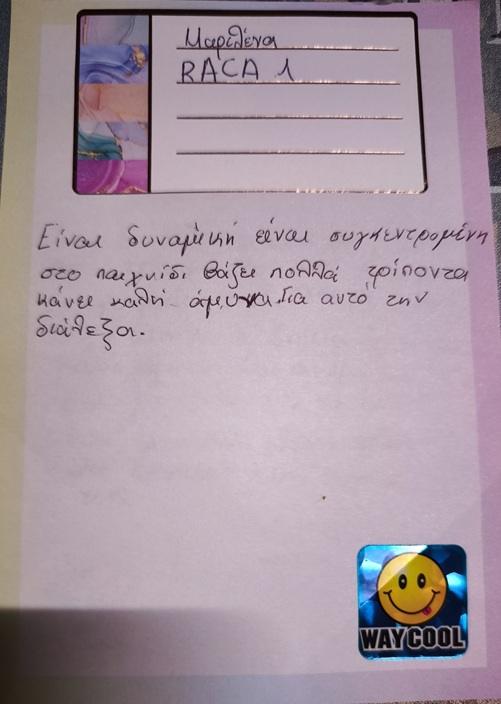 Μαριλένα
RACA 1
Είναι δυναμική είναι συγκεντρομένη
στο παιχνίδι βάζει πολλά τρίποντα
κάνει καλή άμυνα για αυτό την
διάλεξα.
WAY COOL